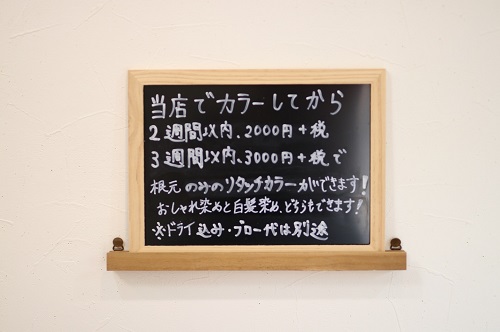 当店でカラーしてから
2週間以内、2000円+税
3週間以内、3000円+税で
根元のみのリタッチカラーができます!
おしゃれ染めと白髪染め、どちらもできます!
※ドライ込み・ブロー代は別途